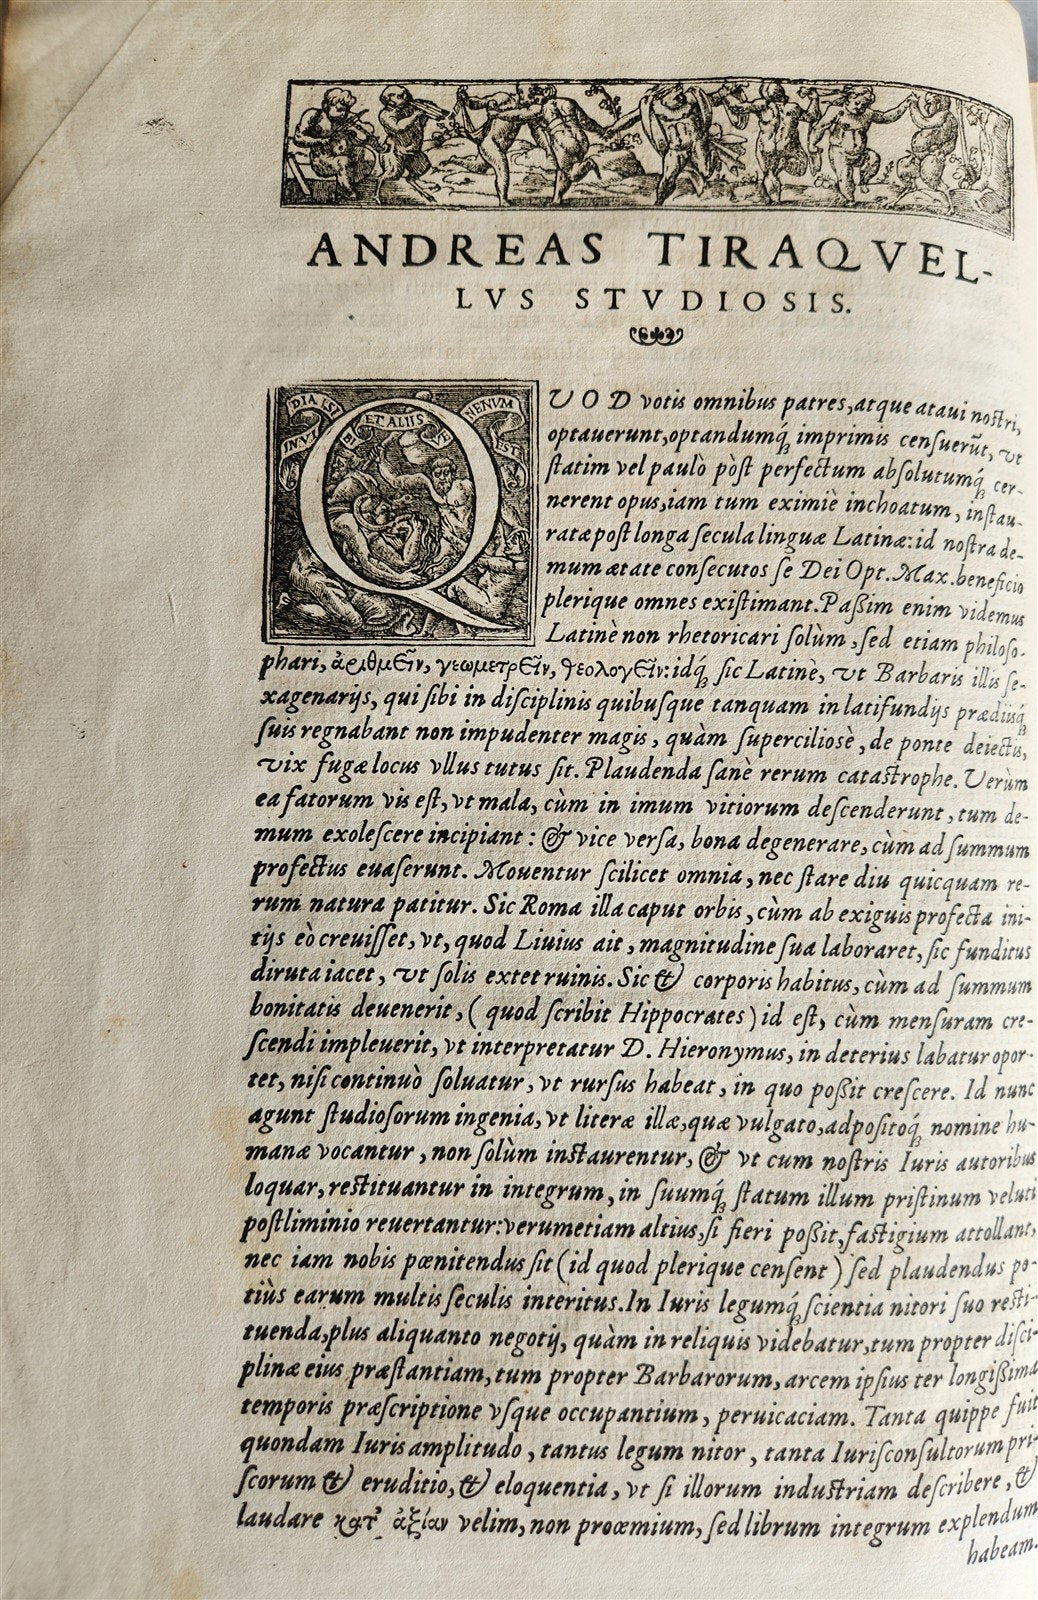 ANDREAS TIRAQVEL-
LVS STVDIOSIS.
INVI DIA EST
SIBI ET ALIIS VE
NENVM EST
QVOD votis omnibus patres, atque ataui nostri,
optauerunt, optandumq́; imprimis censuerūt, vt
statim vel paulò pòst perfectum absolutumq́; cer-
nerent opus, iam tum eximiè inchoatum, instau-
ratæ post longa secula linguæ Latinæ: id nostra de-
mum ætate consecutos se Dei Opt. Max. beneficio
plerique omnes existimant. Paßim enim videmus
Latinè non rhetoricari solùm, sed etiam philoso-
phari, ἀριθμεῖν, γεωμετρεῖν, θεολογεῖν: idq́; sic Latinè, vt Barbaris illis se-
xagenarijs, qui sibi in disciplinis quibusque tanquam in latifundijs prædijsq́;
suis regnabant non impudenter magis, quàm superciliosè, de ponte deiectis,
vix fugæ locus vllus tutus sit. Plaudenda sanè rerum catastrophe. Verùm
ea fatorum vis est, vt mala, cùm in imum vitiorum descenderunt, tum de-
mum exolescere incipiant: & vice versa, bona degenerare, cùm ad summum
profectus euaserunt. Mouentur scilicet omnia, nec stare diu quicquam re-
rum natura patitur. Sic Roma illa caput orbis, cùm ab exiguis profecta ini-
tijs eò creuisset, vt, quod Liuius ait, magnitudine sua laboraret, sic funditus
diruta iacet, vt solis extet ruinis. Sic & corporis habitus, cùm ad summum
bonitatis deuenerit, (quod scribit Hippocrates) id est, cùm mensuram cre-
scendi impleuerit, vt interpretatur D. Hieronymus, in deterius labatur opor-
tet, nisi continuò soluatur, vt rursus habeat, in quo poßit crescere. Id nunc
agunt studiosorum ingenia, vt literæ illæ, quæ vulgato, adpositoq́; nomine hu-
manæ vocantur, non solùm instaurentur, & vt cum nostris Iuris autoribus
loquar, restituantur in integrum, in suumq́; statum illum pristinum veluti
postliminio reuertantur: verumetiam altius, si fieri poßit, fastigium attollant,
nec iam nobis pœnitendus sit (id quod plerique censent) sed plaudendus po-
tiùs earum multis seculis interitus. In Iuris legumq́; scientia nitori suo resti-
tuenda, plus aliquanto negotij, quàm in reliquis videbatur, tum propter disci-
plinæ eius præstantiam, tum propter Barbarorum, arcem ipsius ter longißima
temporis præscriptione vsque occupantium, peruicaciam. Tanta quippe fuit
quondam Iuris amplitudo, tantus legum nitor, tanta Iurisconsultorum pri-
scorum & eruditio, & eloquentia, vt si illorum industriam describere, &
laudare κατ' ἀξίαν velim, non proœmium, sed librum integrum explendum
habeam.